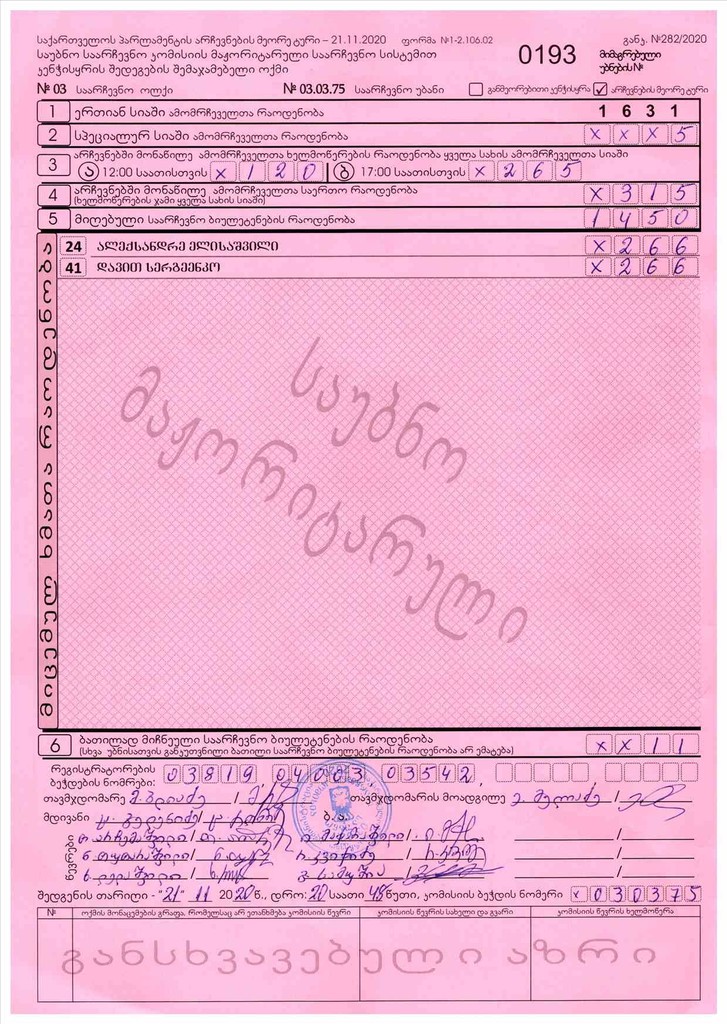 საქართველოს პარლამენტის არჩევნების მეორე ტური – 21.11.2020 ფორმა №1-2.106.02 განკ. №282/2020
საუბნო საარჩევნო კომისიის მაჟორიტარული საარჩევნო სისტემით
კენჭისყრის შედეგების შემაჯამებელი ოქმი 0193 მიმაგრებული უბნების №
№ 03 საარჩევნო ოლქი № 03.03.75 საარჩევნო უბანი განმეორებითი კენჭისყრა ✓ არჩევნების მეორე ტური
1 ერთიან სიაში ამომრჩეველთა რაოდენობა 1 6 3 1
2 სპეციალურ სიაში ამომრჩეველთა რაოდენობა X X X 5
3 არჩევნებში მონაწილე ამომრჩეველთა ხელმოწერების რაოდენობა ყველა სახის ამომრჩეველთა სიაში
ა 12:00 საათისთვის X 1 2 0 ბ 17:00 საათისთვის X 2 6 5
4 არჩევნებში მონაწილე ამომრჩეველთა საერთო რაოდენობა X 3 1 5
(ხელმოწერების ჯამი ყველა სახის სიაში)
5 მიღებული საარჩევნო ბიულეტენების რაოდენობა 1 4 5 0
მიცემულ ხმათა რაოდენობა
24 ალექსანდრე ელისაშვილი X 2 6 6
41 დავით სერგეენკო X 2 6 6
საუბნო
მაჟორიტარული
6 ბათილად მიჩნეული საარჩევნო ბიულეტენების რაოდენობა X X 1 1
(სხვა უბნისათვის განკუთვნილი ბათილი საარჩევნო ბიულეტენების რაოდენობა არ ემატება)
რეგისტრატორების
ბეჭდების ნომრები: 03819 04003 03542
თავმჯდომარე / თავმჯდომარის მოადგილე /
მდივანი / ბ.ა.
წევრები
შედგენის თარიღი - "21" 11 2020 წ., დრო: 20 საათი 48 წუთი, კომისიის ბეჭდის ნომერი X 0 3 0 3 7 5
№ ოქმის მონაცემების გრაფა, რომელსაც არ ეთანხმება კომისიის წევრი კომისიის წევრის სახელი და გვარი კომისიის წევრის ხელმოწერა
განსხვავებული აზრი